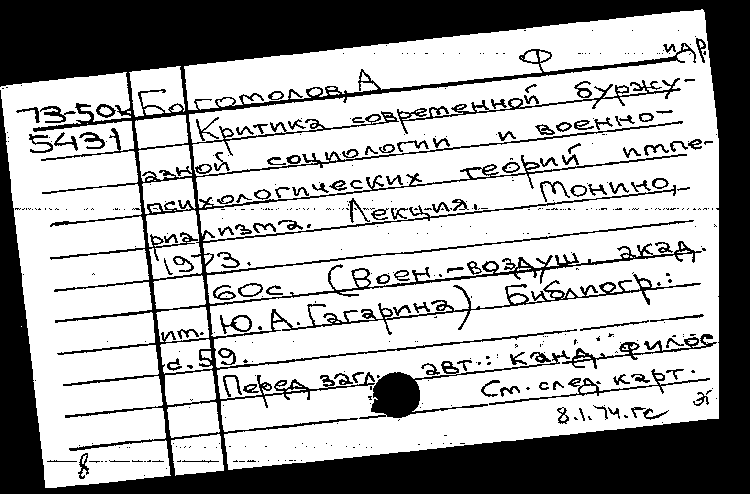 73-50к Богомолов, А Ф и др.
5431 Критика современной буржу-
азной социологии и военно-
психологических теорий импе-
риализма. Лекция. Монино,
1973.
60с. (Воен.-воздуш. акад.
им. Ю.А.Гагарина). Библиогр.:
с.59.
Перед загл. авт.: канд. филос
См. след. карт.
8.1.74.гс
8